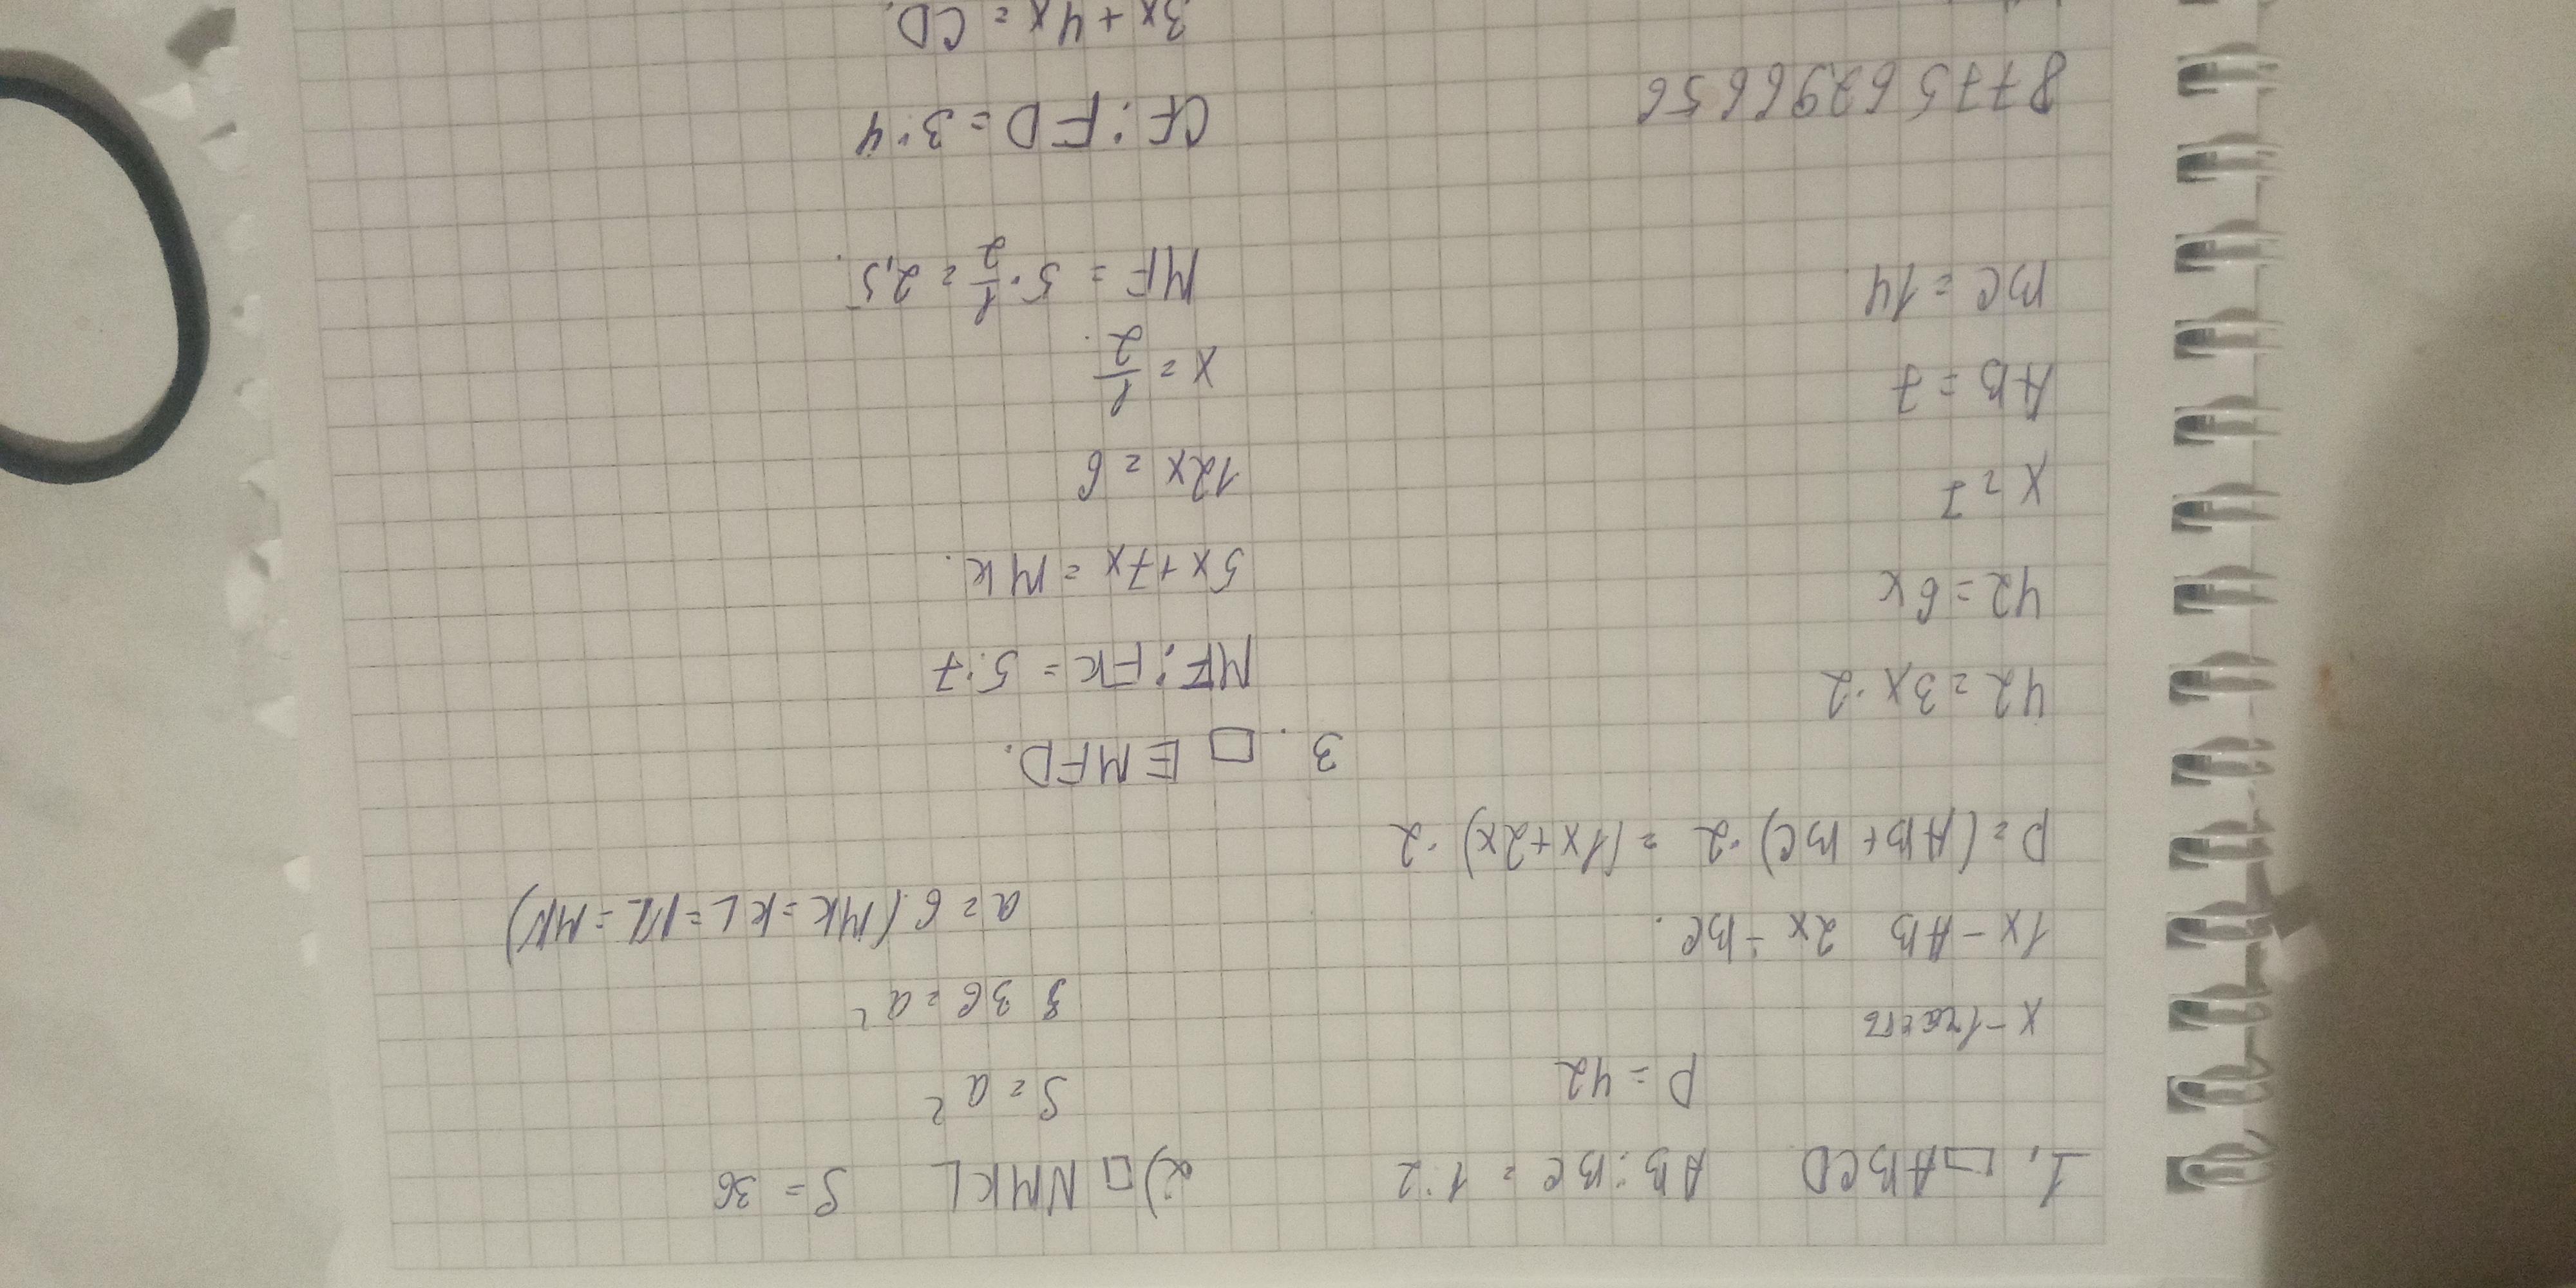 1. □ABCD AB:BC = 1:2
P = 42
x - 1 часть
1x - AB 2x - BC.
P = (AB + BC)·2 = (1x+2x)·2
42 = 3x·2
42 = 6x
x = 7
AB = 7
BC = 14
87756296656
2) □ NMKL S = 36
S = a²
36 = a²
a = 6 (MK = KL = NL = MN)
3. □ EMFD.
MF:FK = 5:7
5x+7x = MK.
12x = 6
x = 1/2.
MF = 5·1/2 = 2,5.
CF:FD = 3:4
3x + 4x = CD.